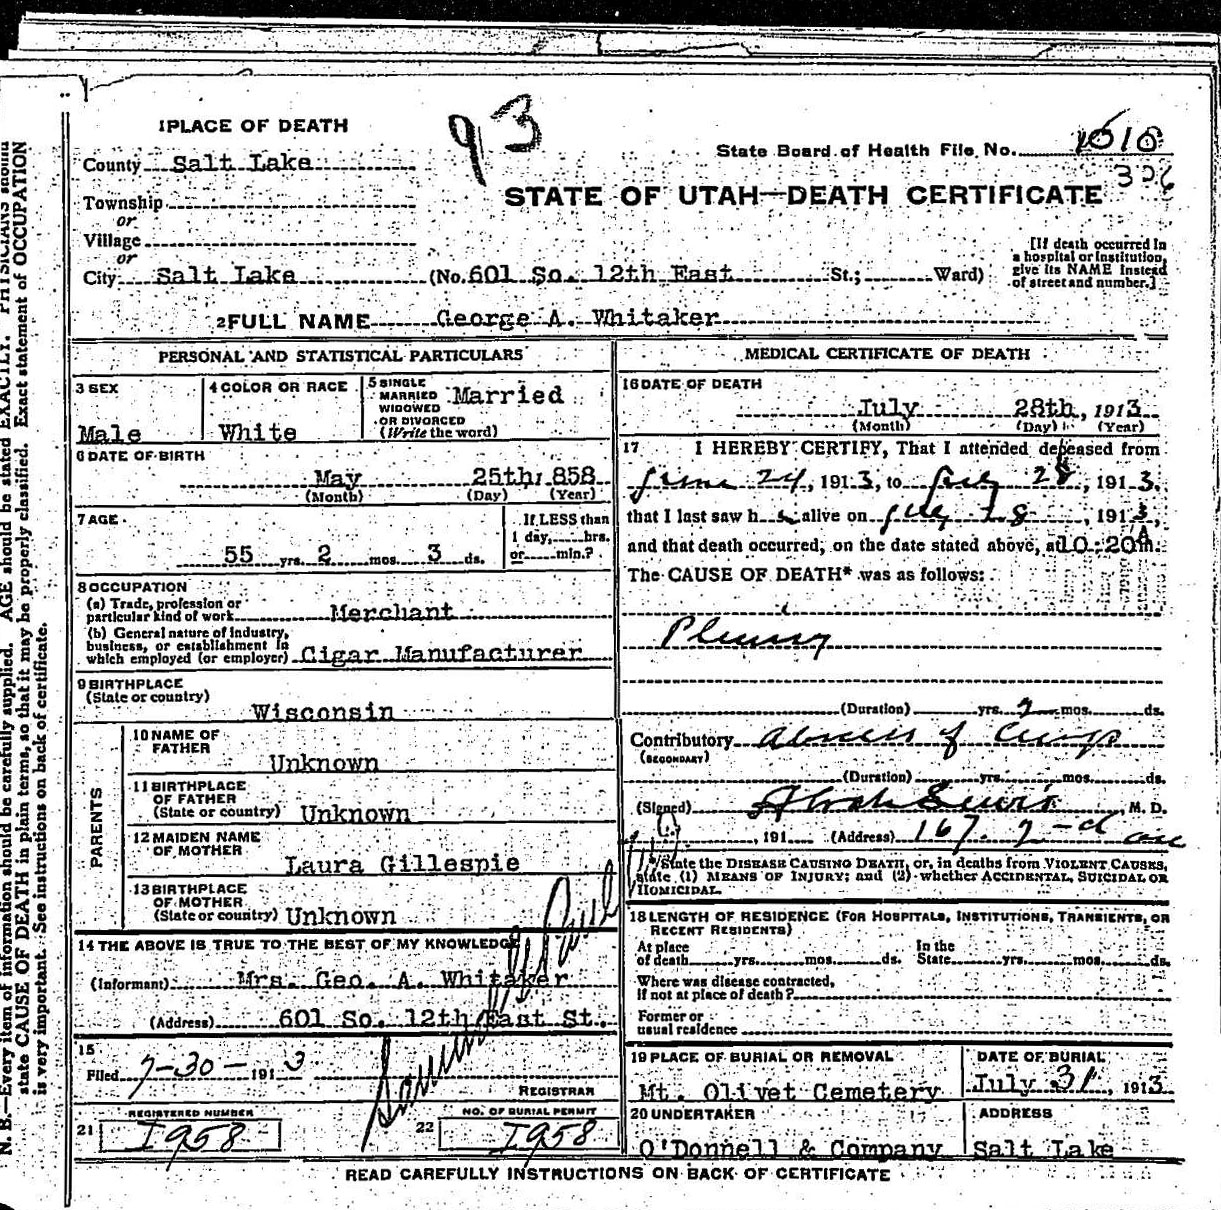 93
1 PLACE OF DEATH
State Board of Health File No.
326
County Salt Lake
STATE OF UTAH—DEATH CERTIFICATE
Township
or
Village
or
City Salt Lake (No. 601 So. 12th East St.; Ward)
[If death occurred in
a hospital or institution,
give its NAME instead
of street and number.]
2 FULL NAME George A. Whitaker
PERSONAL AND STATISTICAL PARTICULARS
3 SEX
Male
4 COLOR OR RACE
White
5 SINGLE
MARRIED
WIDOWED
OR DIVORCED
(Write the word)
Married
6 DATE OF BIRTH
May 25th, 1858
(Month) (Day) (Year)
7 AGE
55 yrs. 2 mos. 3 ds.
If LESS than
1 day, hrs.
or min.?
8 OCCUPATION
(a) Trade, profession or
particular kind of work Merchant
(b) General nature of industry,
business, or establishment in
which employed (or employer) Cigar Manufacturer
9 BIRTHPLACE
(State or country)
Wisconsin
PARENTS
10 NAME OF
FATHER
Unknown
11 BIRTHPLACE
OF FATHER
(State or country) Unknown
12 MAIDEN NAME
OF MOTHER
Laura Gillespie
13 BIRTHPLACE
OF MOTHER
(State or country) Unknown
14 THE ABOVE IS TRUE TO THE BEST OF MY KNOWLEDGE
(Informant) Mrs. Geo. A. Whitaker
(Address) 601 So. 12th East St.
15
Filed 7-30- 1913
REGISTRAR
REGISTERED NUMBER
21 I958
NO. OF BURIAL PERMIT
22 I958
MEDICAL CERTIFICATE OF DEATH
16 DATE OF DEATH
July 28th, 1913
(Month) (Day) (Year)
17 I HEREBY CERTIFY, That I attended deceased from
June 24, 1913, to July 28, 1913,
that I last saw h alive on July 28, 1913,
and that death occurred, on the date stated above, at 10:20 A m.
The CAUSE OF DEATH* was as follows:
Pleurisy
(Duration) yrs. 2 mos. ds.
Contributory Abscess of Lungs
(SECONDARY)
(Duration) yrs. mos. ds.
(Signed) M. D.
, 191 (Address) 167. 2-d ave
*State the DISEASE CAUSING DEATH, or, in deaths from VIOLENT CAUSES,
state (1) MEANS OF INJURY; and (2) whether ACCIDENTAL, SUICIDAL OR
HOMICIDAL.
18 LENGTH OF RESIDENCE (FOR HOSPITALS, INSTITUTIONS, TRANSIENTS, OR
RECENT RESIDENTS)
At place
of death yrs. mos. ds.
In the
State yrs. mos. ds.
Where was disease contracted,
if not at place of death?
Former or
usual residence
19 PLACE OF BURIAL OR REMOVAL
Mt. Olivet Cemetery
DATE OF BURIAL
July 31, 1913
20 UNDERTAKER
O'Donnell & Company
ADDRESS
Salt Lake
READ CAREFULLY INSTRUCTIONS ON BACK OF CERTIFICATE
N. B.—Every item of information should be carefully supplied. AGE should be stated EXACTLY. PHYSICIANS should
state CAUSE OF DEATH in plain terms, so that it may be properly classified. Exact statement of OCCUPATION
is very important. See instructions on back of certificate.